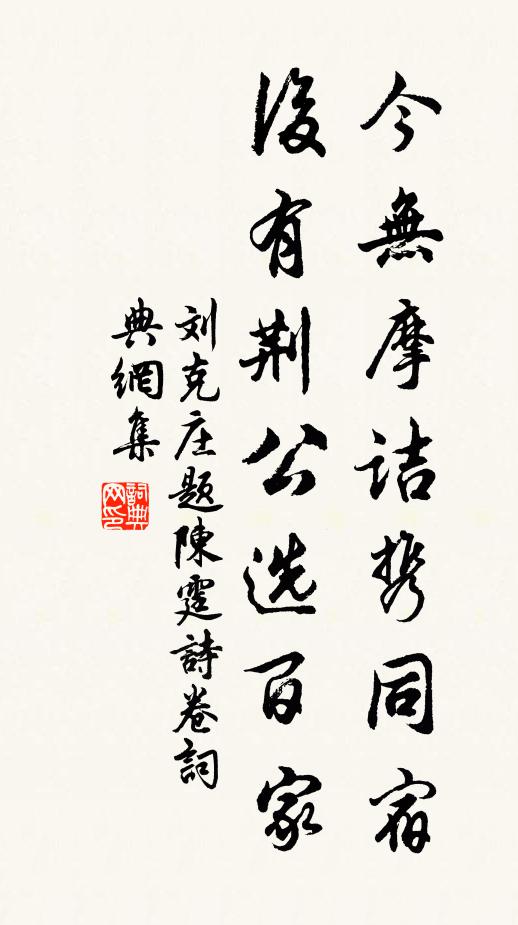 今無摩詰携同宿
後有荆公选百家
刘克庄题陳霆詩卷詞
典網集
詞典
网印